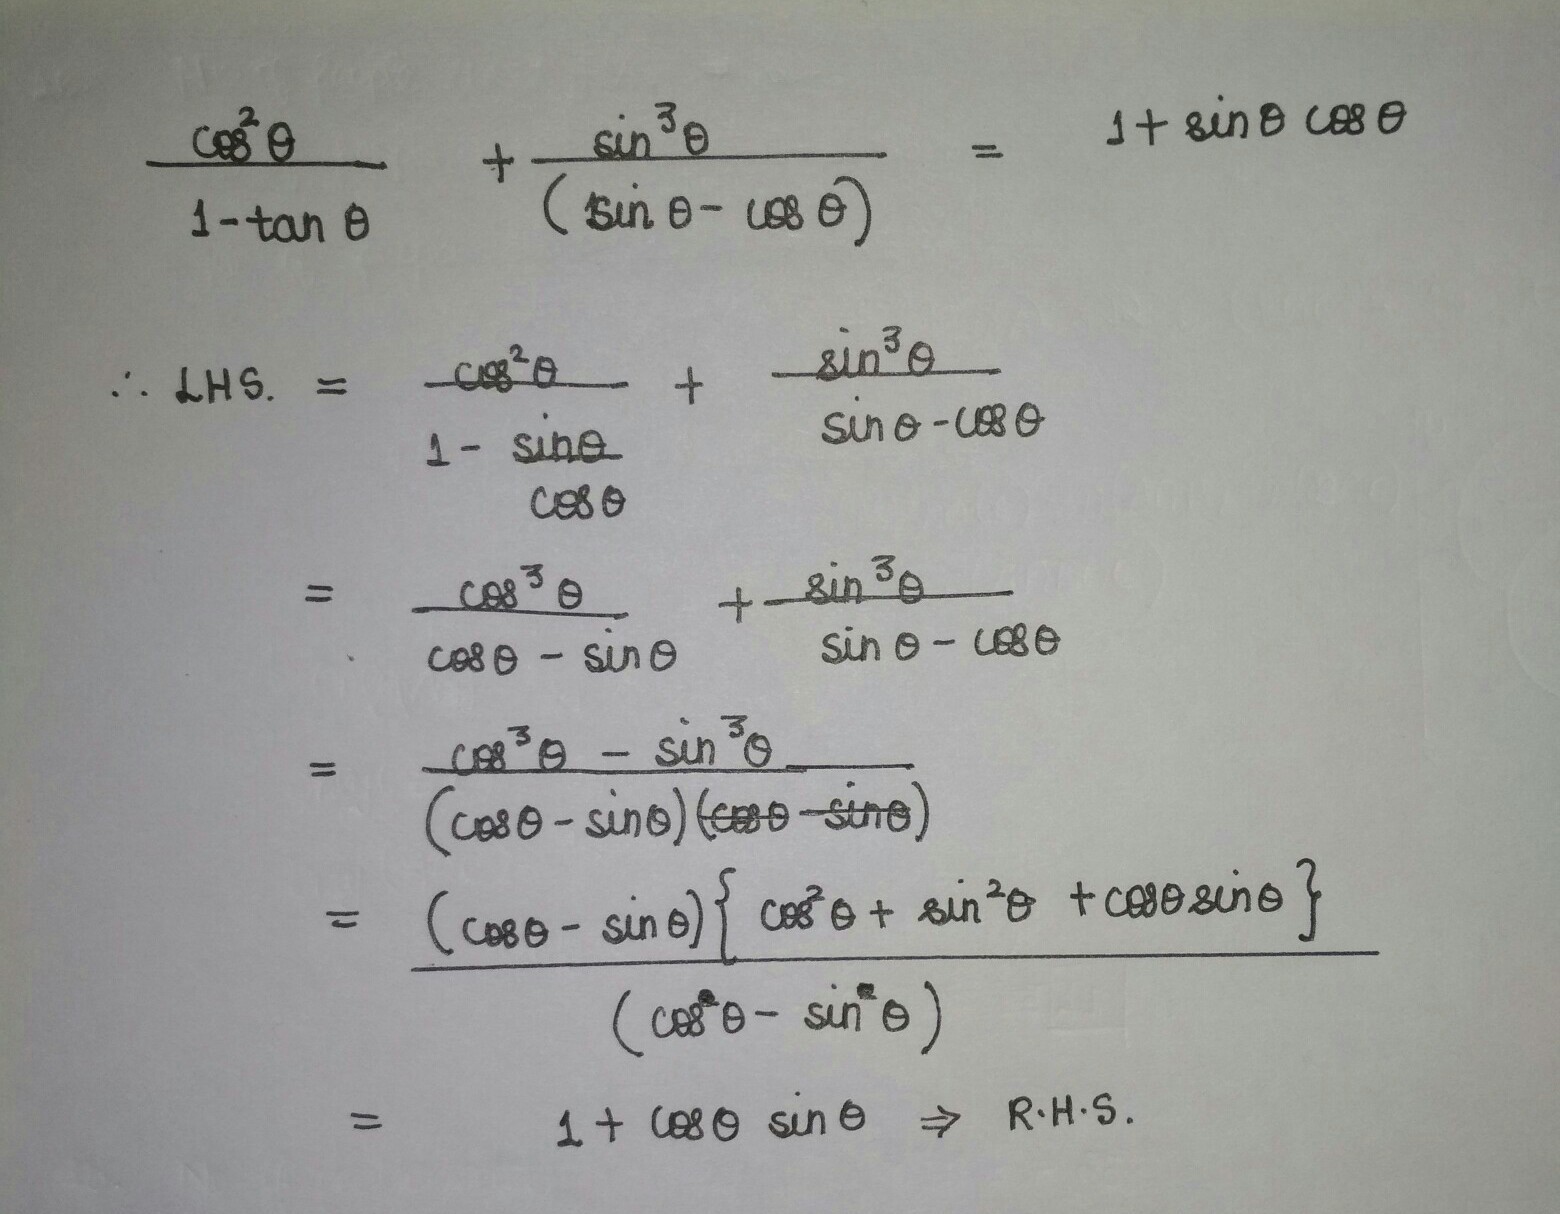 cos²θ/(1-tan θ) + sin³θ/(sin θ - cos θ) = 1 + sin θ cos θ
∴ LHS. = cos²θ/(1 - sinθ/cosθ) + sin³θ/(sin θ - cos θ)
= cos³θ/(cos θ - sin θ) + sin³θ/(sin θ - cos θ)
= (cos³θ - sin³θ)/((cosθ - sinθ)(cosθ - sinθ))
= (cosθ - sinθ){cos²θ + sin²θ + cosθ sinθ}/(cosθ - sinθ)
= 1 + cosθ sin θ ⇒ R.H.S.